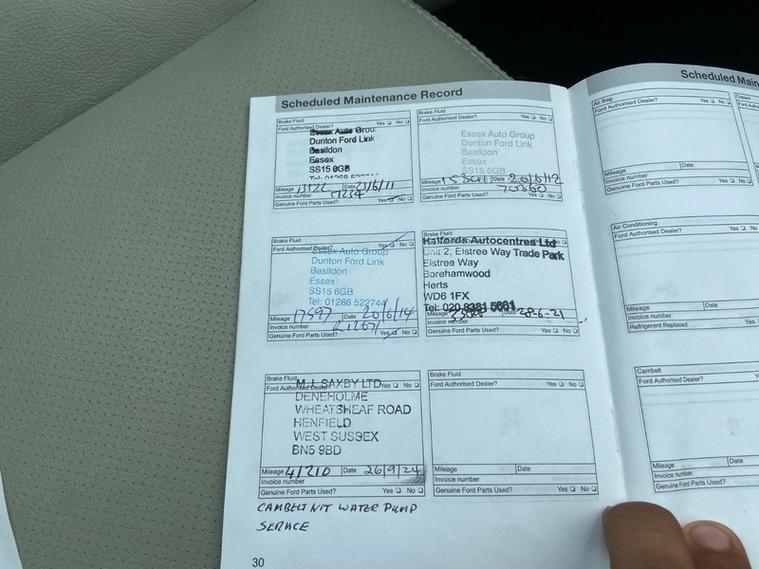 Scheduled Maintenance Record
Brake Fluid
Ford Authorised Dealer? Yes No
Essex Auto Group
Dunton Ford Link
Basildon
Essex
SS15 6GB
Mileage Date 23/6/11
Invoice number
Genuine Ford Parts Used? Yes No
Brake Fluid
Ford Authorised Dealer? Yes No
Essex Auto Group
Dunton Ford Link
Basildon
Essex
SS15 6GB
Mileage Date 20/6/12
Invoice number 70360
Genuine Ford Parts Used? Yes No
Brake Fluid
Ford Authorised Dealer? Yes No
Essex Auto Group
Dunton Ford Link
Basildon
Essex
SS15 6GB
Tel: 01268 522744
Mileage 17597 Date 20/6/14
Invoice number
Genuine Ford Parts Used? Yes No
Halfords Autocentres Ltd
Unit 2, Elstree Way Trade Park
Elstree Way
Borehamwood
Herts
WD6 1FX
Tel: 020 8381 5661
Mileage Date 28-6-21
Invoice number
Genuine Ford Parts Used? Yes No
Brake Fluid
Ford Authorised Dealer? Yes No
M.J. SAXBY LTD
DENEHOLME
WHEATSHEAF ROAD
HENFIELD
WEST SUSSEX
BN5 9BD
Mileage 41210 Date 26/9/24
Invoice number
Genuine Ford Parts Used? Yes No
Brake Fluid
Ford Authorised Dealer? Yes No
Mileage Date
Invoice number
Genuine Ford Parts Used? Yes No
CAMBELT KIT WATER PUMP
SERVICE
30
Scheduled Main
Air Bag
Ford Authorised Dealer? Yes No
Mileage Date
Invoice number
Genuine Ford Parts Used? Yes No
Air Conditioning
Ford Authorised Dealer? Yes No
Mileage Date
Invoice number
Refrigerant Replaced Yes
Cambelt
Ford Authorised Dealer?
Mileage Date
Invoice number
Genuine Ford Parts Used?